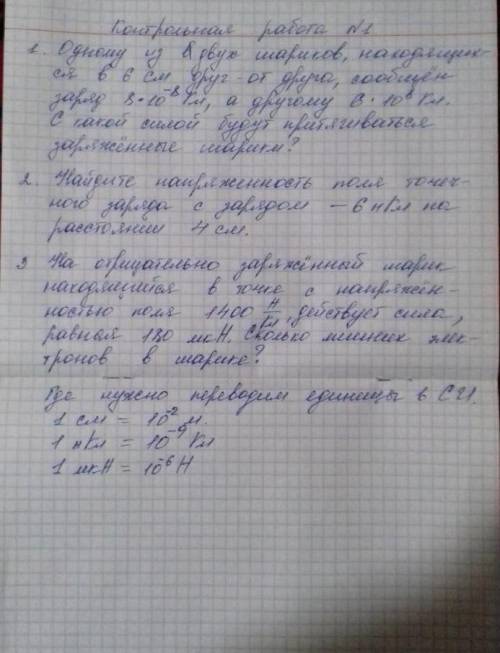 Контрольная работа №1
1. Одному из двух шариков, находящих-
ся в 6 см друг от друга, сообщён
заряд 8·10⁻⁸ Кл, а другому 6·10⁸ Кл.
С какой силой будут притягиваться
заряжённые шарики?
2. Найдите напряженность поля точеч-
ного заряда с зарядом – 6 нКл на
расстоянии 4 см.
3 На отрицательно заряжённый шарик
находящийся в точке с напряжён-
ностью поля 1400 Н/Кл, действует сила,
равная 180 мкН. Сколько лишних элек-
тронов в шарике?
Где нужно переводим единицы в СИ.
1 см = 10⁻² м.
1 нКл = 10⁻⁹ Кл
1 мкН = 10⁻⁶ Н